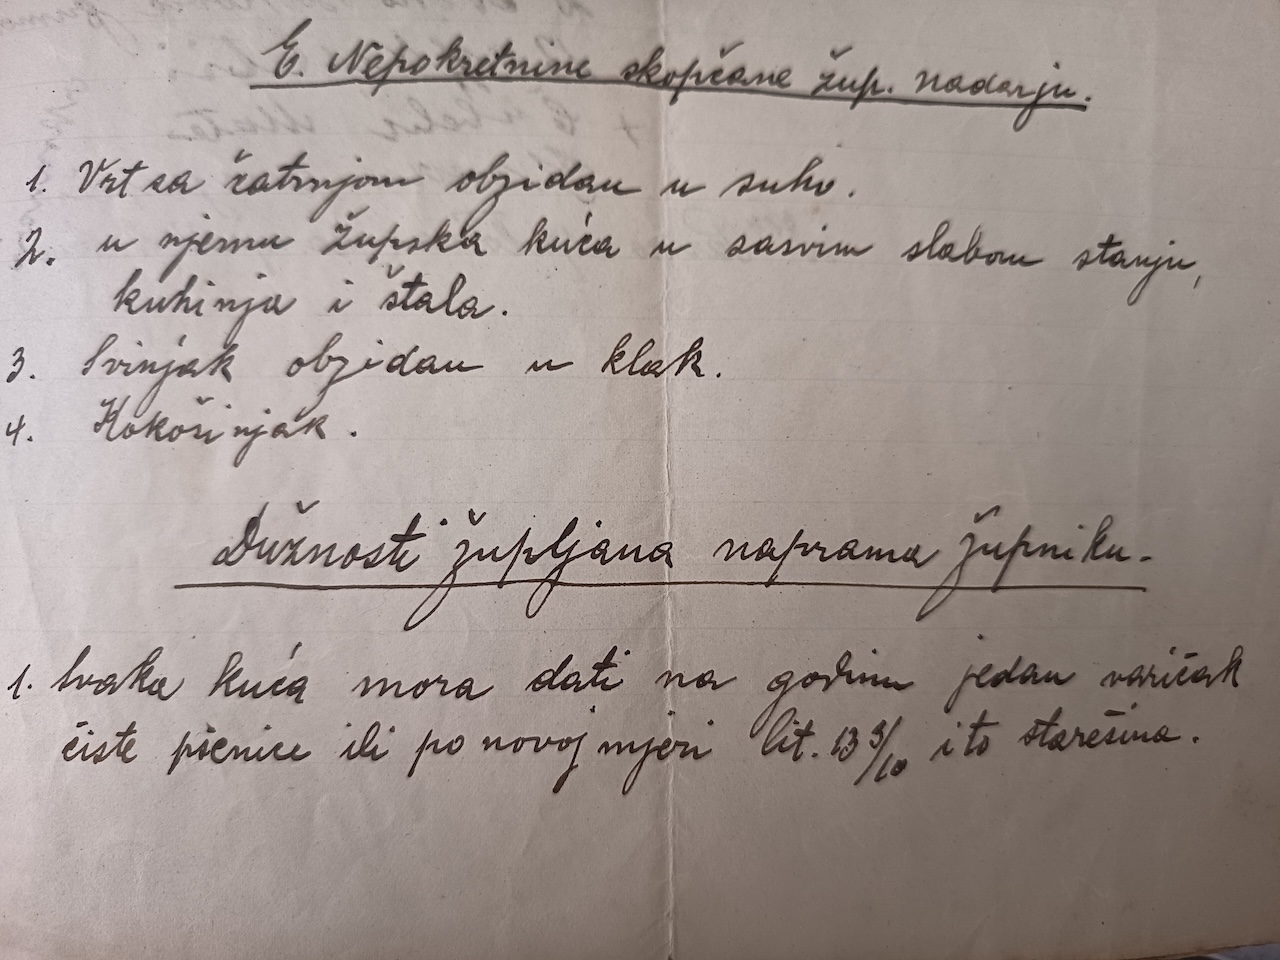 E. Nepokretnine skopčane žup. nadarju.
1. Vrt sa čatrnjom obzidan u suho.
2. u njemu župska kuća u sasvim slabom stanju,
kuhinja i štala.
3. Svinjak obzidan u klak.
4. Kokošinjak.
Dužnosti župljana naprama župniku.
1. Svaka kuća mora dati na godinu jedan varićak
čiste pšenice ili po novoj mjeri lit. 13 3/10 i to starešina.